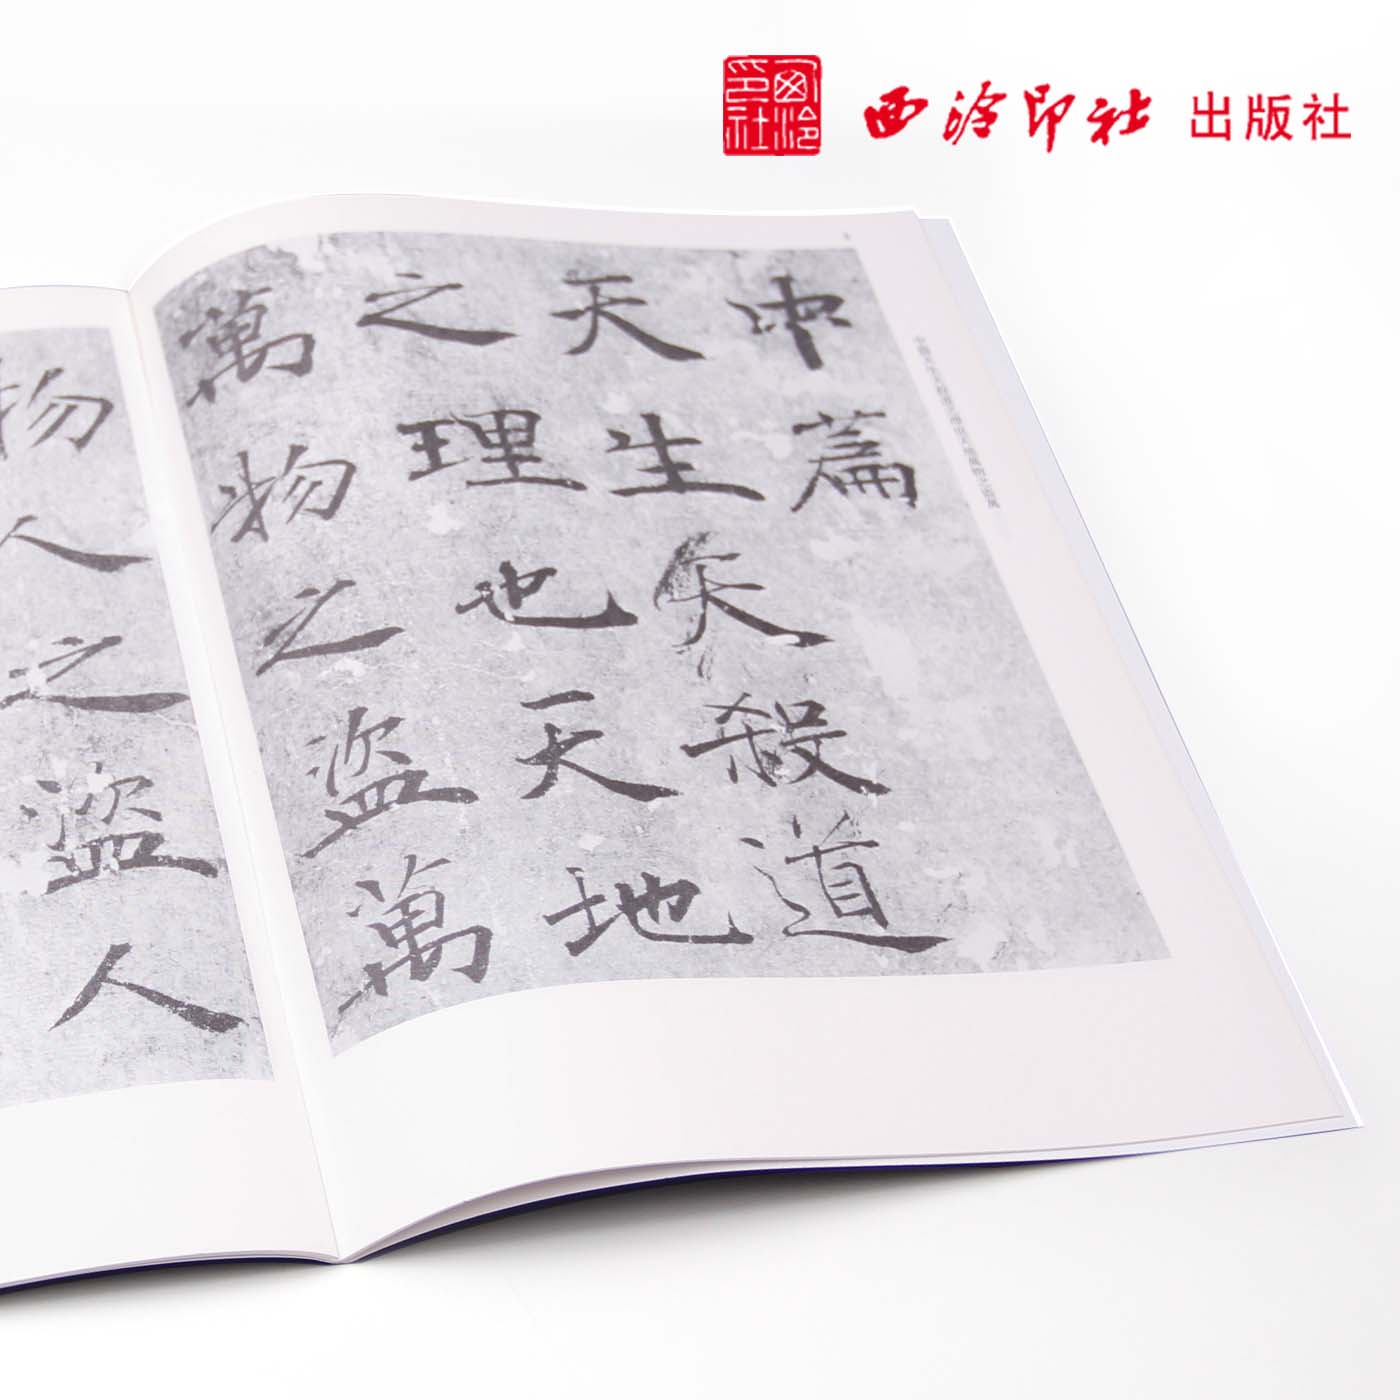 西泠印社
西泠印社 出版社
中篇
天生天殺道
之理也天地
萬物之盜萬
物人之盜人